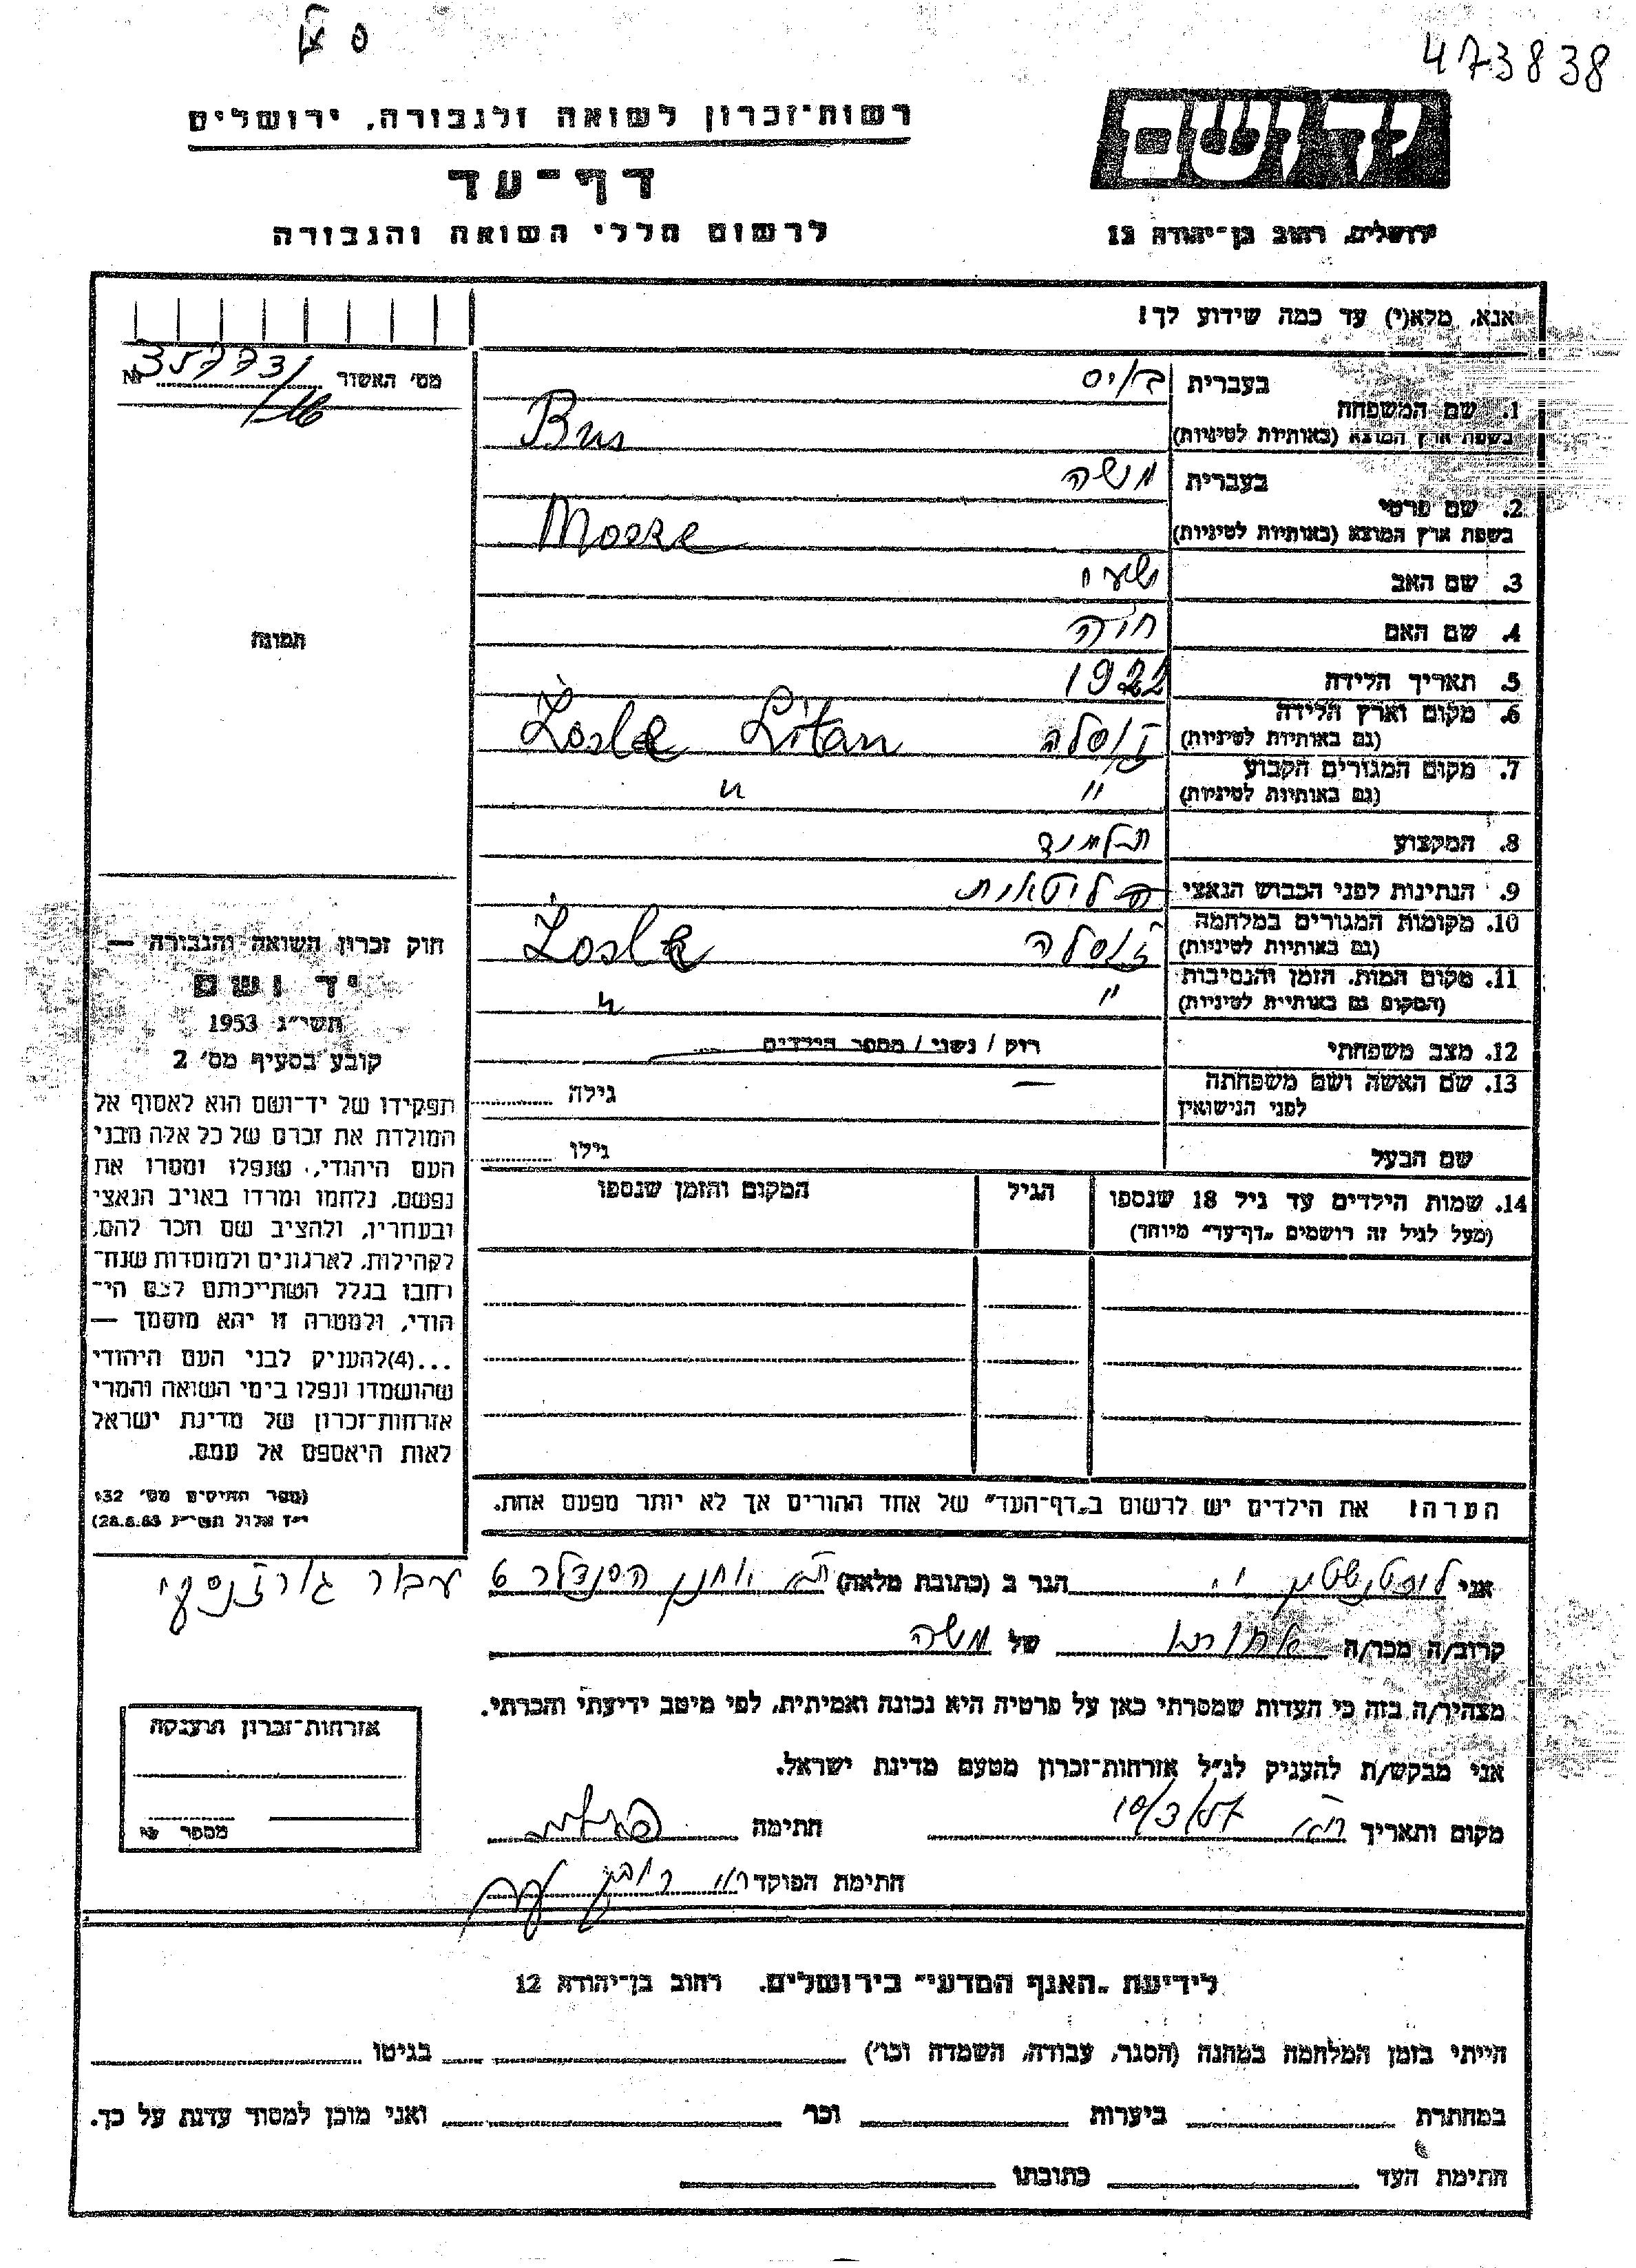 473838
רשות־זכרון לשואה ולגבורה, ירושלים
דף־עד
לרשום חללי השואה והגבורה
יד ושם
ירושלים, רחוב בן־יהודה 12
אנא, מלא(י) עד כמה שידוע לך!
מס' האשור
1. שם המשפחה בעברית
Bus
בשפת ארץ המוצא (באותיות לטיניות)
2. שם פרטי בעברית משה
בשפת ארץ המוצא (באותיות לטיניות)
3. שם האב
4. שם האם חיה
5. תאריך הלידה 1922
6. מקום וארץ הלידה
(גם באותיות לטיניות) זוסלה Žosle Litan
7. מקום המגורים הקבוע
(גם באותיות לטיניות) " "
8. המקצוע תלמיד
9. הנתינות לפני הכבוש הנאצי ליטאית
10. מקומות המגורים במלחמה
(גם באותיות לטיניות) זוסלה Žosle
11. מקום המות, הזמן והנסיבות
(המקום גם באותיות לטיניות) " "
12. מצב משפחתי רוק / נשוי / מספר הילדים
13. שם האשה ושם משפחתה
לפני הנישואין — גילה
שם הבעל גילו
14. שמות הילדים עד גיל 18 שנספו הגיל המקום והזמן שנספו
(מעל לגיל זה רושמים „דף־עד" מיוחד)
הערה! את הילדים יש לרשום ב„דף־העד" של אחד ההורים אך לא יותר מפעם אחת.
תמונה
חוק זכרון השואה והגבורה —
יד ושם
תשי"ג 1953
קובע בסעיף מס' 2
תפקידו של יד־ושם הוא לאסוף אל
המולדת את זכרם של כל אלה מבני
העם היהודי, שנפלו ומסרו את
נפשם, נלחמו ומרדו באויב הנאצי
ובעוזריו, ולהציב שם וזכר להם,
לקהילות, לארגונים ולמוסדות שנח־
רבו בגלל השתייכותם לעם הי־
הודי, ולמטרה זו יהא מוסמך —
...(4)להעניק לבני העם היהודי
שהושמדו ונפלו בימי השואה והמרי
אזרחות־זכרון של מדינת ישראל
לאות היאספם אל עמם.
(ספר החוקים מס' 132
י"ז אלול תשי"ג
אני הגר ב (כתובת מלאה) ת"א יוחנן הסנדלר
קרוב/ה מכר/ה של משה
מצהיר/ה בזה כי העדות שמסרתי כאן על פרטיה היא נכונה ואמיתית, לפי מיטב ידיעתי והכרתי.
אני מבקש/ת להעניק לנ"ל אזרחות־זכרון מטעם מדינת ישראל.
מקום ותאריך ת"א 10/3/57 חתימה
חתימת הפוקד
אזרחות־זכרון הוענקה
מספר
לידיעת „האגף המדעי" בירושלים, רחוב בן־יהודה 12
הייתי בזמן המלחמה במחנה (הסגר, עבודה, השמדה וכו') בגיטו
במחתרת ביערות וכו' ואני מוכן למסור עדות על כך.
חתימת העד כתובתו